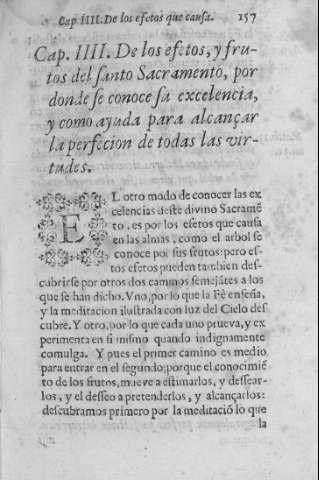 Cap. IIII. De los efetos que causa. 157
Cap. IIII. De los efetos, y fru-
tos del santo Sacramento, por
donde se conoce sa excelencia,
y como ayuda para alcançar
la perfecion de todas las vir-
tudes.
EL otro modo de conocer las ex
celencias deste divino Sacramẽ
to, es por los efetos que causa
en las almas, como el arbol se
conoce por sus frutos: pero es-
tos efetos pueden tambien des-
cubrirse por otros dos caminos semejãtes a los
que se han dicho. Vno, por lo que la Fè enseña,
y la meditacion ilustrada con luz del Cielo des
cubre. Y otro, por lo que cada uno prueva, y ex
perimenta en si mismo quando indignamente
comulga. Y pues el primer camino es medio
para entrar en el segundo; porque el conocimiẽ
to de los frutos, mueve a estimarlos, y dessear-
los, y el desseo a pretenderlos, y alcançarlos:
descubramos primero por la meditaciõ lo que
la